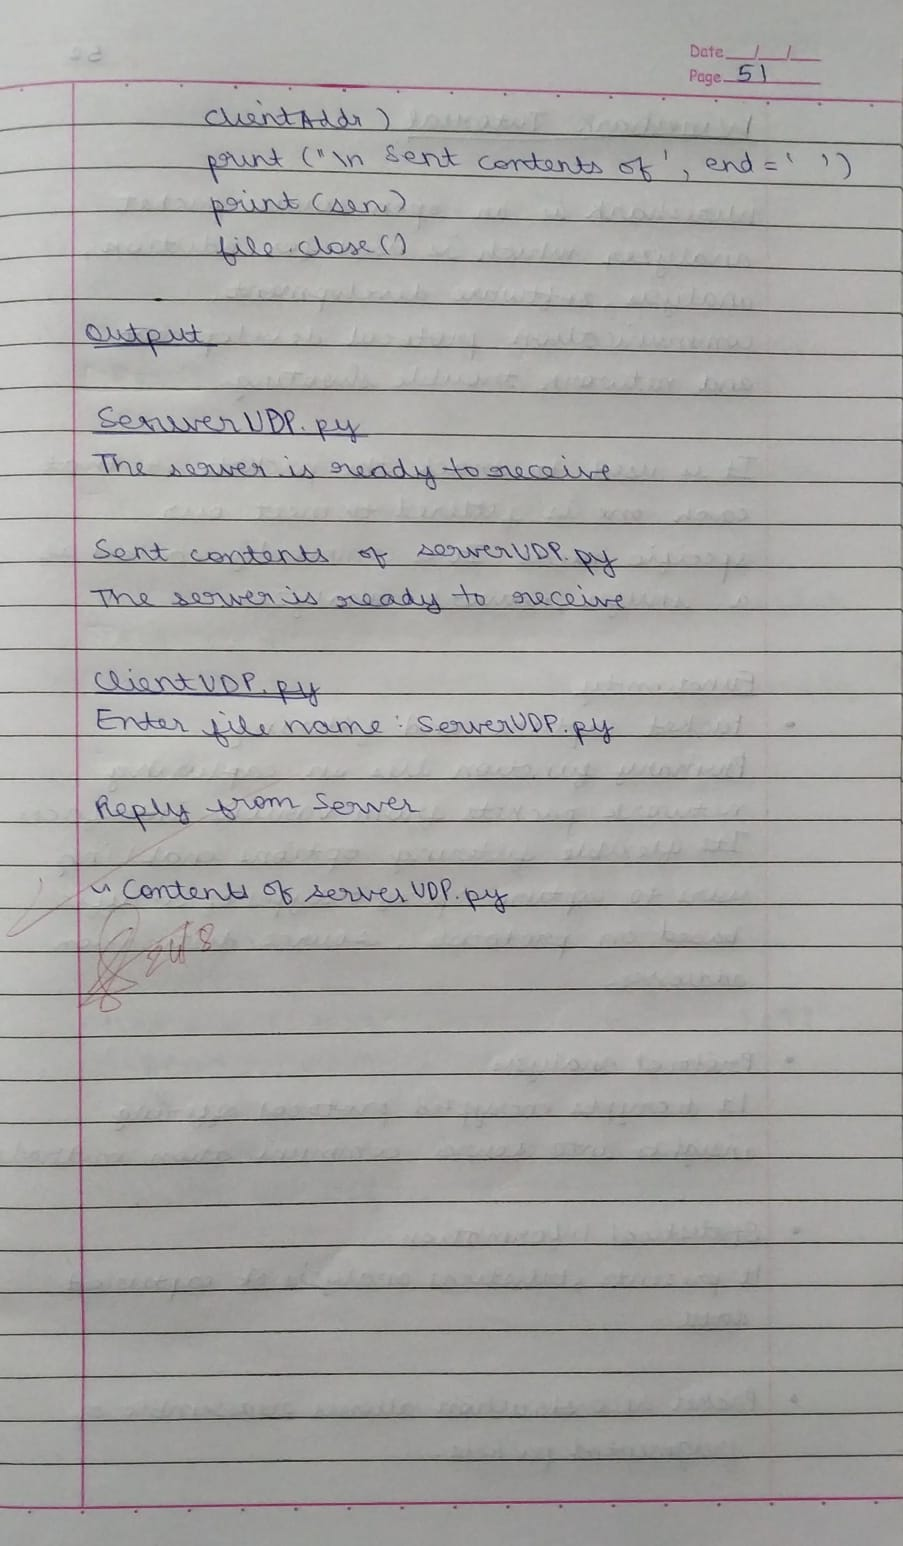 Date __/__/__
Page 51
clientAddr)
print ("\n Sent contents of', end=' ')
print (sen)
file.close()
Output
ServerUDP.py
The server is ready to receive
Sent contents of serverUDP.py
The server is ready to receive
ClientUDP.py
Enter file name: ServerUDP.py
Reply from Server
Contents of serverUDP.py